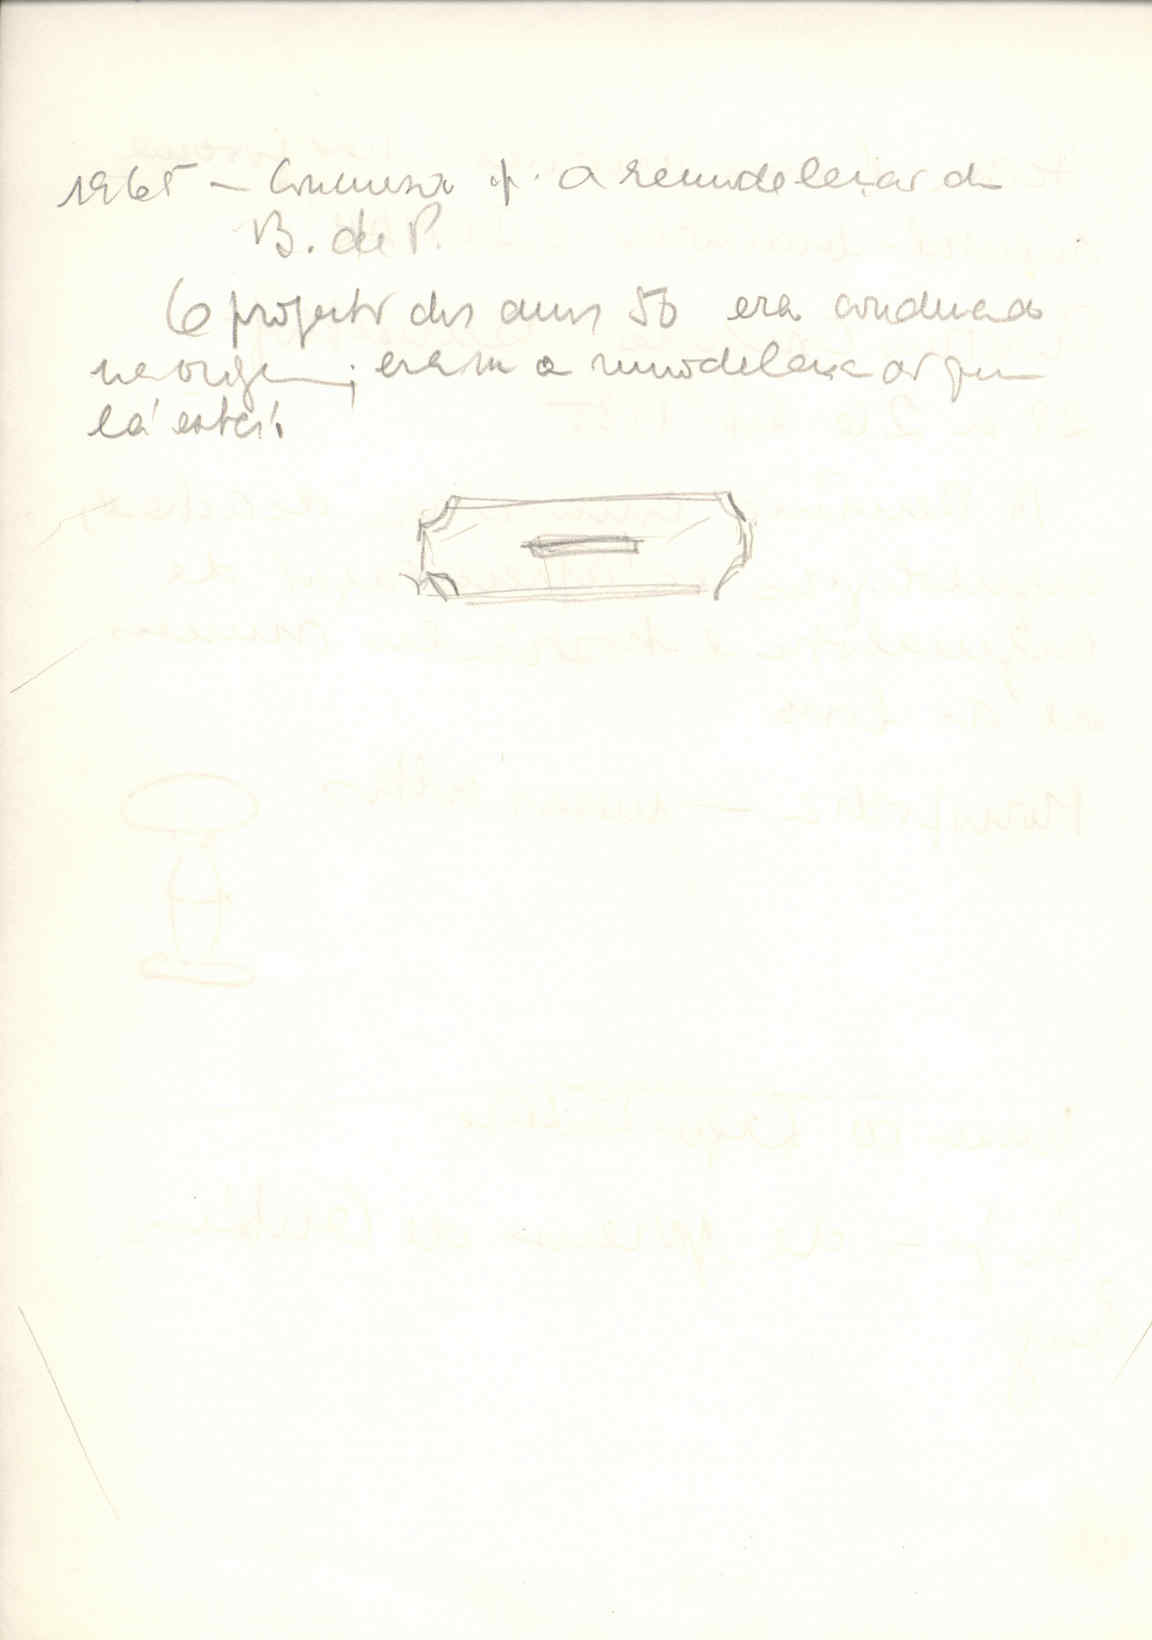 1965 – Concurso p. a remodelação do
B. de P.
O projecto dos anos 50 era
na origem; era a remodelação que
lá está.